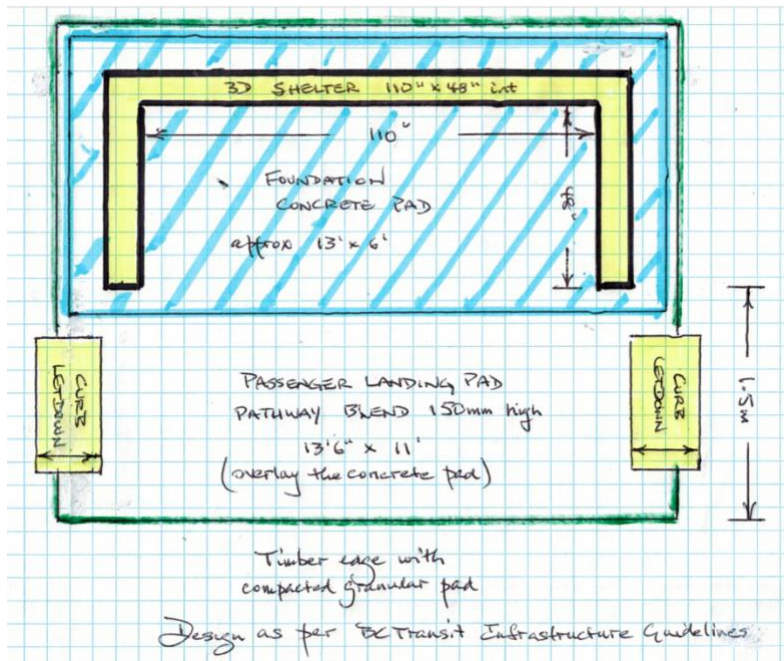 3D SHELTER 110" x 48" int
110"
48"
FOUNDATION
CONCRETE PAD
approx 13' x 6'
CURB
LETDOWN
CURB
LETDOWN
1.5m
PASSENGER LANDING PAD
PATHWAY BLEND 150mm high
13'6" x 11'
(overlay the concrete pad)
Timber edge with
compacted granular pad
Design as per BC Transit Infrastructure Guidelines